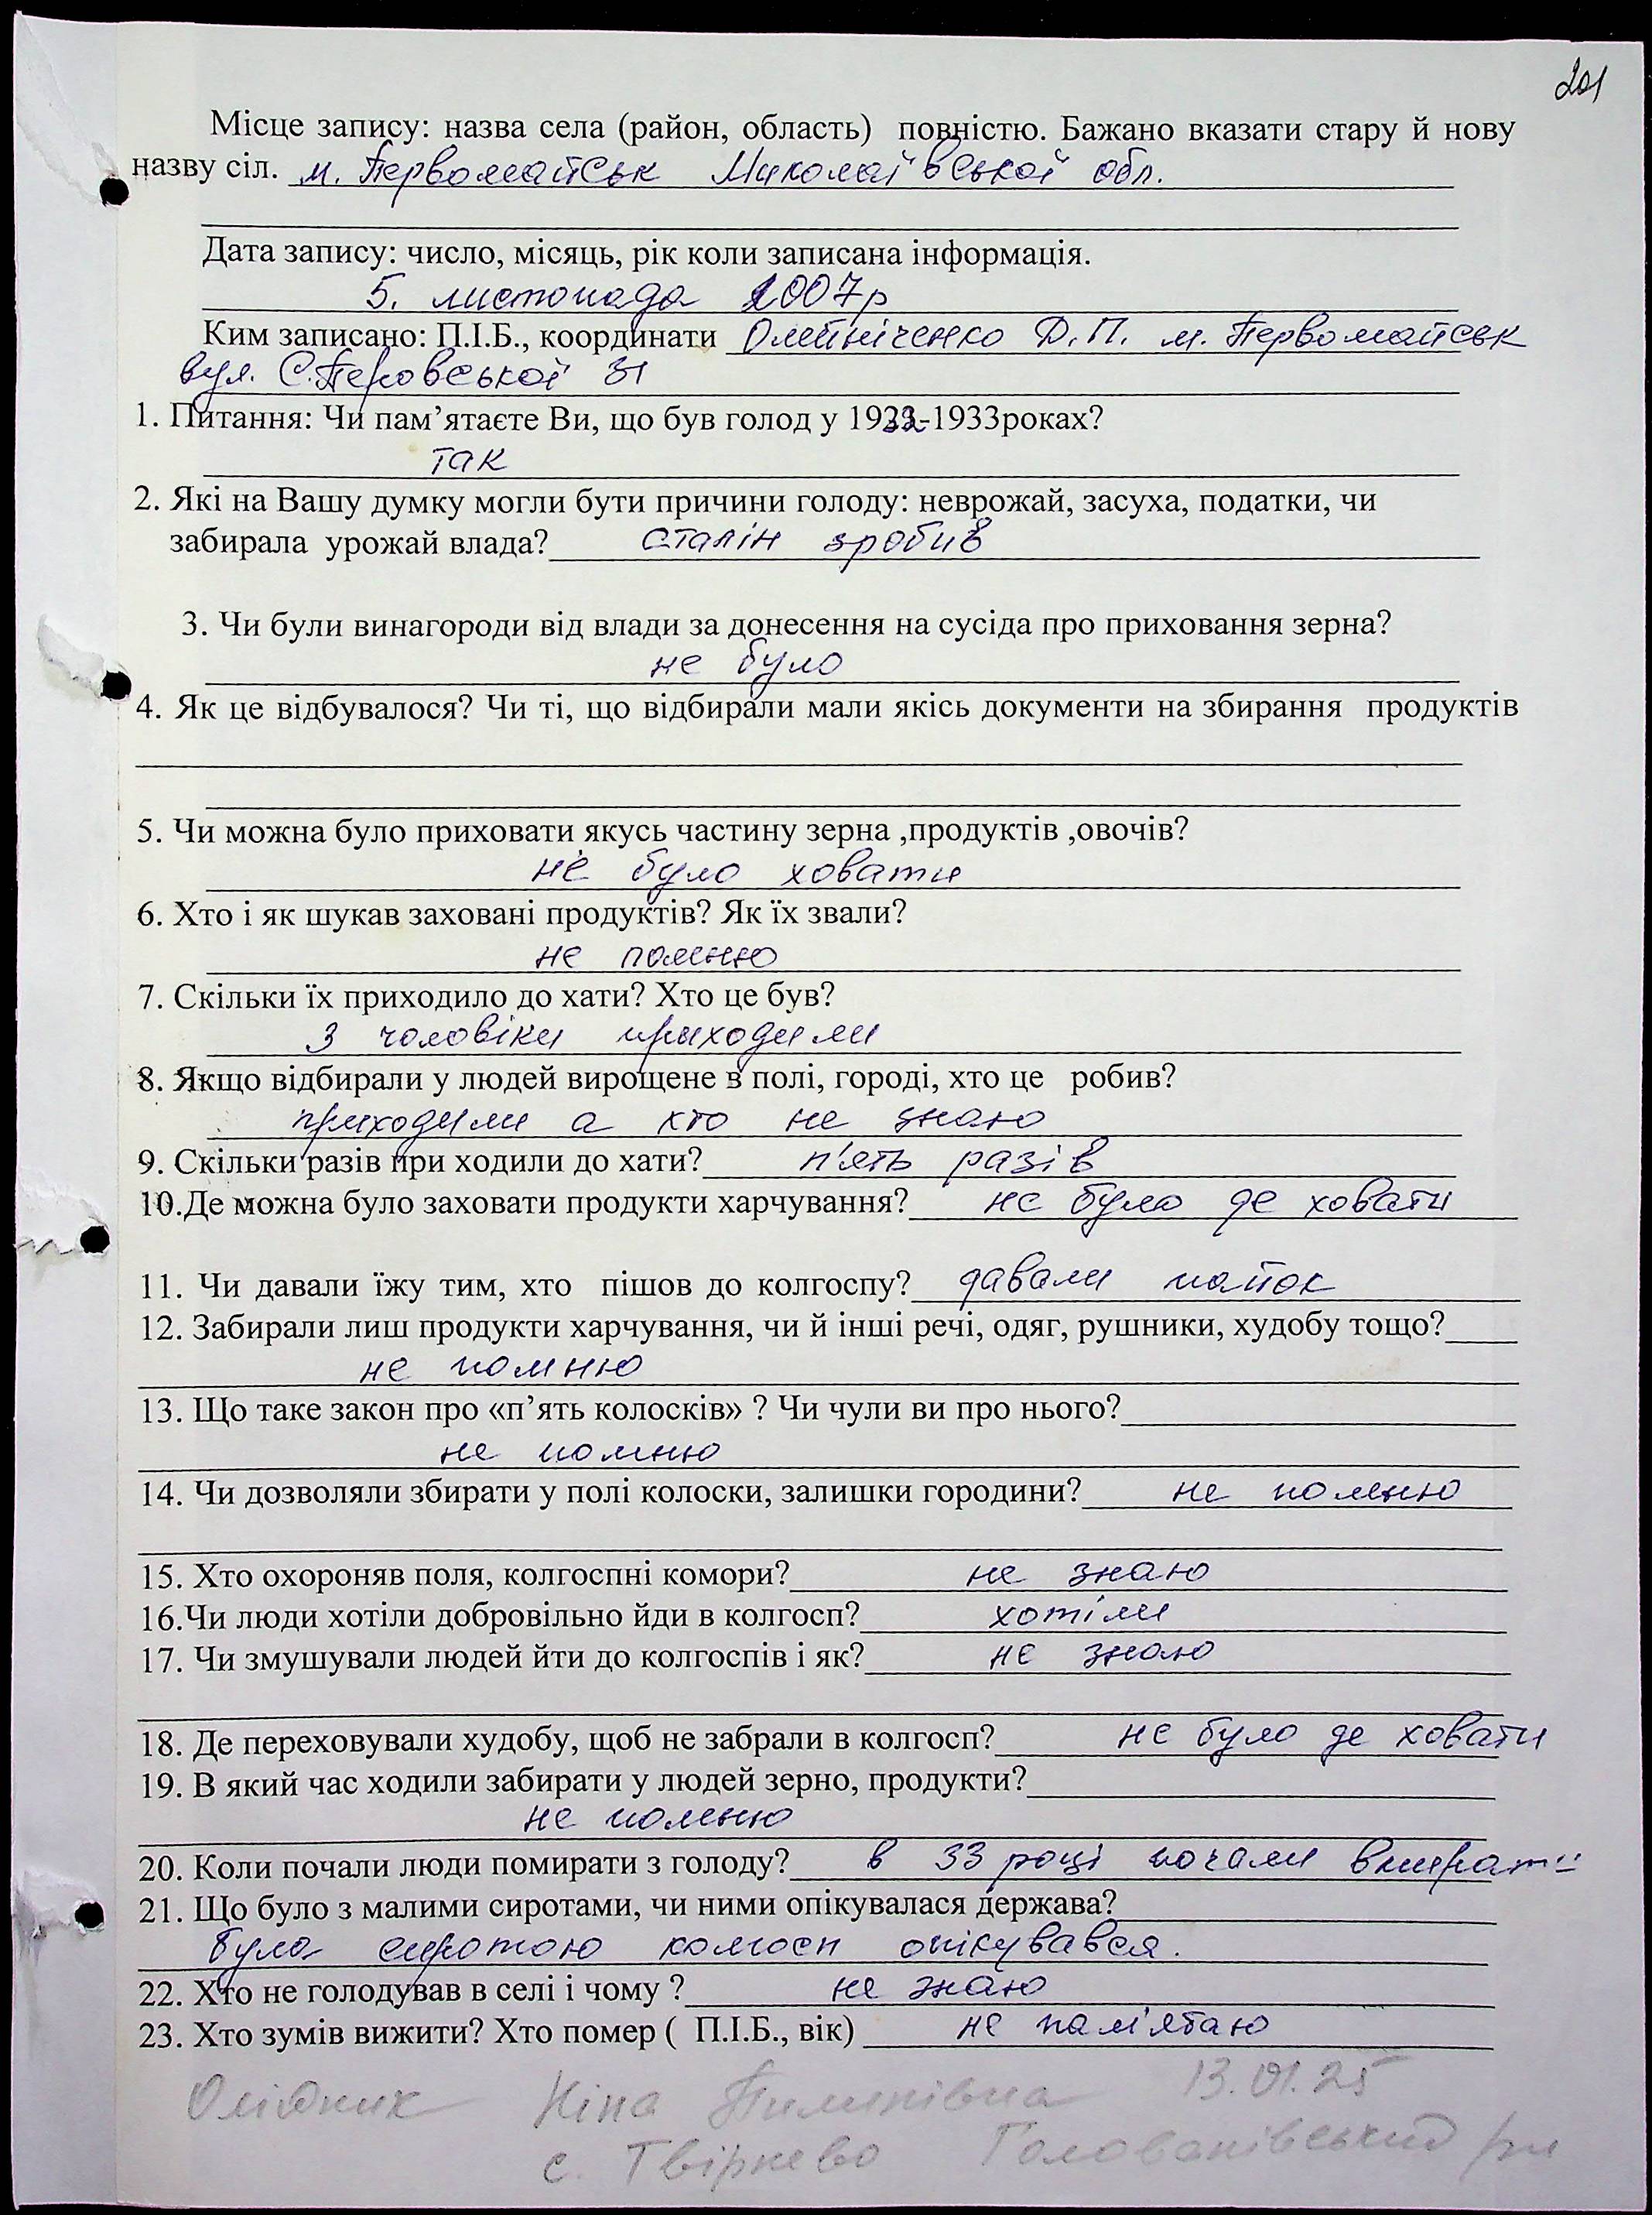 201
Місце запису: назва села (район, область) повністю. Бажано вказати стару й нову
назву сіл. м. Первомайськ Миколаївської обл.
Дата запису: число, місяць, рік коли записана інформація.
5. листопада 2007р
Ким записано: П.І.Б., координати Олійніченко Д.П. м. Первомайськ
вул. С.Перовської 31
1. Питання: Чи пам’ятаєте Ви, що був голод у 1932-1933роках?
так
2. Які на Вашу думку могли бути причини голоду: неврожай, засуха, податки, чи
забирала урожай влада? Сталін зробив
3. Чи були винагороди від влади за донесення на сусіда про приховання зерна?
не було
4. Як це відбувалося? Чи ті, що відбирали мали якісь документи на збирання продуктів
5. Чи можна було приховати якусь частину зерна ,продуктів ,овочів?
не було ховати
6. Хто і як шукав заховані продуктів? Як їх звали?
не помню
7. Скільки їх приходило до хати? Хто це був?
3 чоловіки приходили
8. Якщо відбирали у людей вирощене в полі, городі, хто це робив?
приходили а хто не знаю
9. Скільки разів при ходили до хати? п'ять разів
10.Де можна було заховати продукти харчування? не було де ховати
11. Чи давали їжу тим, хто пішов до колгоспу? давали пайок
12. Забирали лиш продукти харчування, чи й інші речі, одяг, рушники, худобу тощо?
не помню
13. Що таке закон про «п’ять колосків» ? Чи чули ви про нього?
не помню
14. Чи дозволяли збирати у полі колоски, залишки городини? не помню
15. Хто охороняв поля, колгоспні комори? не знаю
16.Чи люди хотіли добровільно йди в колгосп? хотіли
17. Чи змушували людей йти до колгоспів і як? не знаю
18. Де переховували худобу, щоб не забрали в колгосп? не було де ховати
19. В який час ходили забирати у людей зерно, продукти?
не помню
20. Коли почали люди помирати з голоду? в 33 році почали вмирати
21. Що було з малими сиротами, чи ними опікувалася держава?
була сиротою колгосп опікувався.
22. Хто не голодував в селі і чому ? не знаю
23. Хто зумів вижити? Хто помер ( П.І.Б., вік) не пам'ятаю
Ніна Пилипівна 13.01.25
с. Голованівський